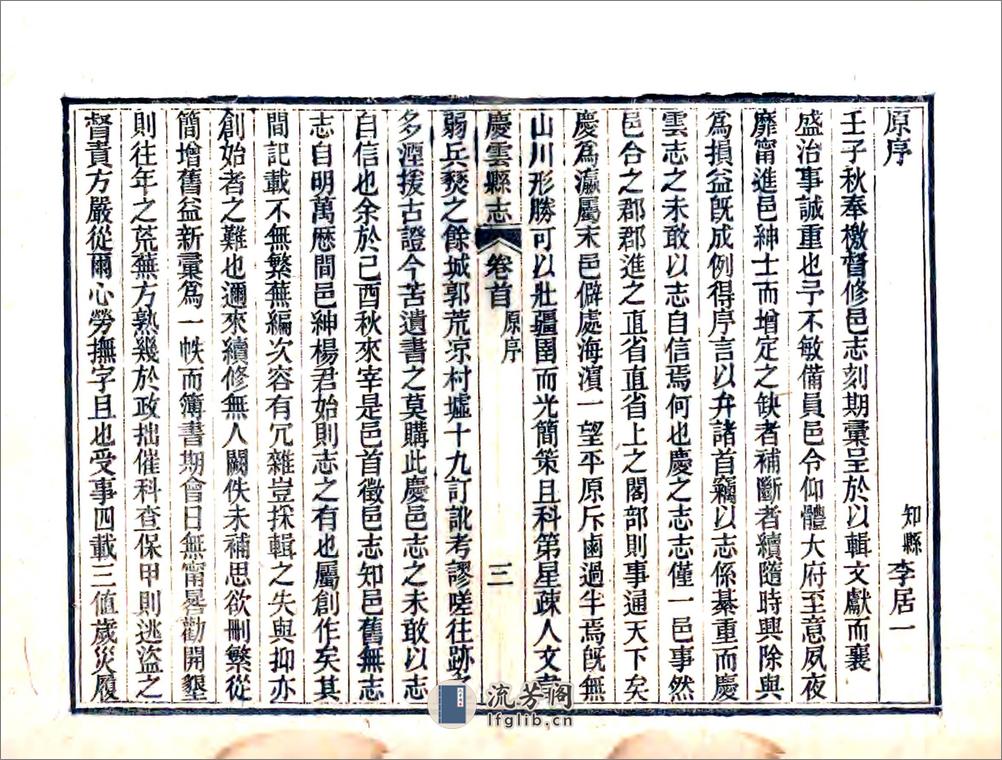 原序
知縣李居一
壬子秋奉檄督修邑志刻期彙呈於以輯文獻而襄
盛治事誠重也予不敏備員邑令仰體大府至意夙夜
靡甯進邑紳士而增定之缺者補斷者續隨時興除與
為損益旣成例得序言以弁諸首竊以志係綦重而慶
雲志之未敢以志自信焉何也慶之志志僅一邑事然
邑合之郡郡進之直省直省上之閣部則事通天下矣
慶為瀛屬末邑僻處海濵一望平原斥鹵過半焉旣無
山川形勝可以壯疆圉而光簡策且科第星疎人文
慶雲縣志
卷首
原序
三
弱兵燹之餘城郭荒凉村墟十九訂訛考謬嗟往跡
多湮援古證今苦遺書之莫購此慶邑志之未敢以志
自信也余於己酉秋來宰是邑首徵邑志知邑舊無志
志自明萬厯間邑紳楊君始則志之有也屬創作矣其
間記載不無繁蕪編次容有冗雜豈採輯之失與抑亦
創始者之難也邇來續修無人闕佚未補思欲刪繁從
簡增舊益新彙為一帙而簿書期會日無甯晷勸開墾
則往年之荒蕪方熟幾於政拙催科查保甲則逃盜之
督責方嚴從爾心勞撫字且也受事四載三值歲災履
流芳阁
lfglib.cn